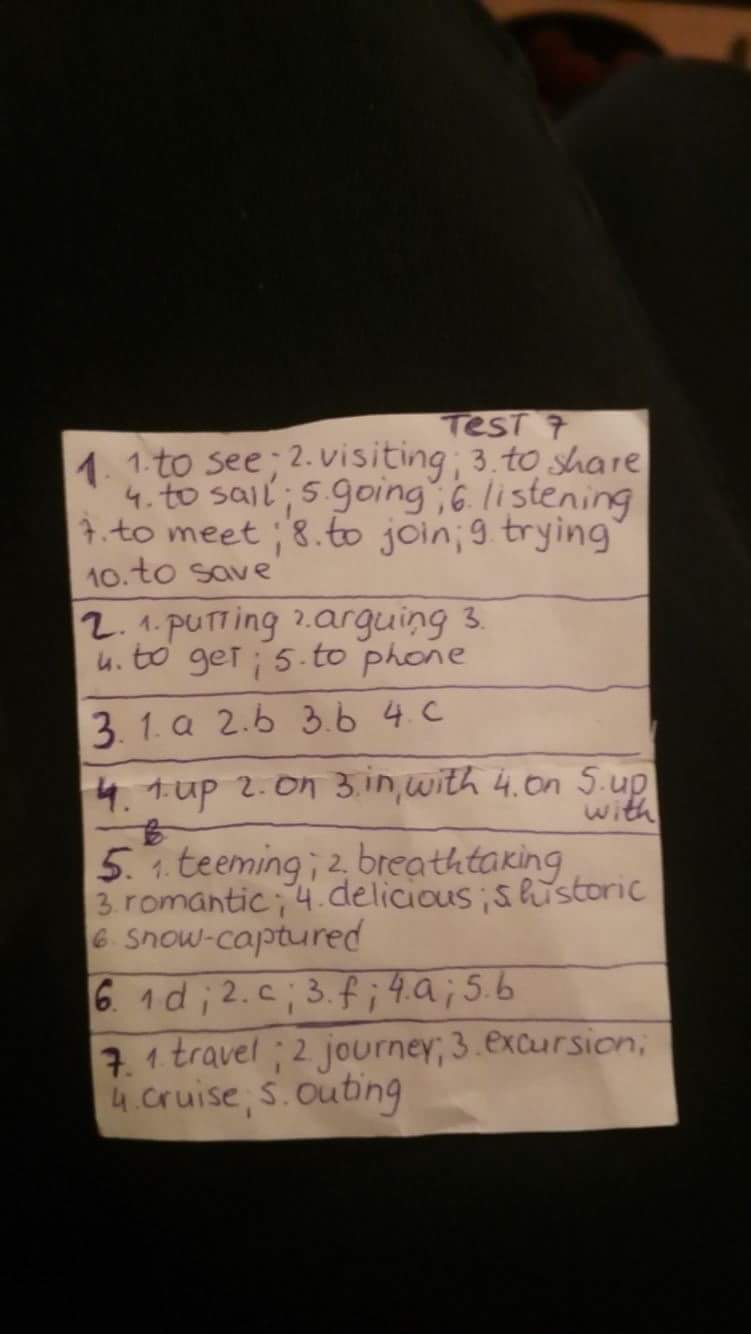 TEST 7
1. 1.to see; 2.visiting; 3.to share
4.to sail; 5.going; 6.listening
7.to meet; 8.to join; 9.trying
10.to save
2. 1.putting 2.arguing 3.
4.to get; 5.to phone
3. 1.a 2.b 3.b 4.c
4. 1.up 2.on 3.in,with 4.on 5.up
with
5. 1.teeming; 2.breathtaking
3.romantic; 4.delicious; 5.historic
6.snow-captured
6. 1d; 2.c; 3.f; 4.a; 5.b
7. 1.travel; 2.journey; 3.excursion;
4.cruise; 5.outing